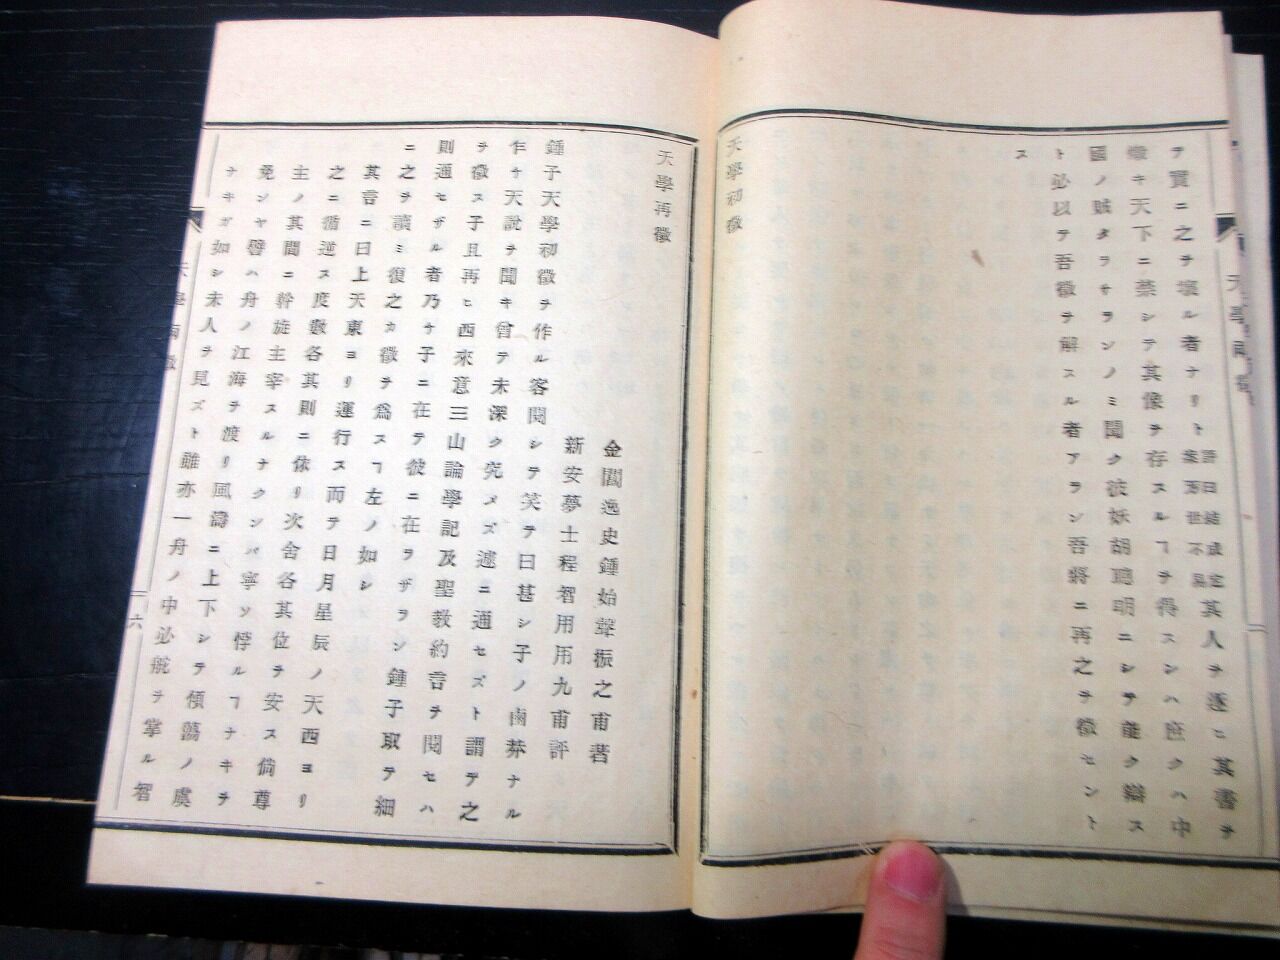 ヲ實ニ之ヲ壞ル者ナリト評曰結成案万世不易其人ヲ逐ニ其書ヲ
燬キ天下ニ禁シテ其像ヲ存スルヿヲ得スンハ庶クハ中
國ノ賊タラサランノミ聞ク彼妖胡聰明ニシテ能ク辯ス
ト必以テ吾徵ヲ解スル者アラン吾將ニ再之ヲ徵セント
ス
天學初徵
天學再徵
金閶逸史鍾始聲振之甫著
新安夢士程智用用九甫評
鍾子天學初徵ヲ作ル客閱シテ笑テ曰甚シ子ノ鹵莽ナル
乍チ天說ヲ聞キ曾テ未深ク究メズ遽ニ通セズト謂テ之
ヲ徵ス子且再ヒ西來意三山論學記及聖教約言ヲ閱セハ
則通セザル者乃チ子ニ在テ彼ニ在ラザラン鍾子取テ細
ニ之ヲ讀ミ復之カ徵ヲ爲スヿ左ノ如シ
其言ニ曰上天東ヨリ運行ス而テ日月星辰ノ天西ヨリ
之ニ循逆ス度數各其則ニ依リ次舍各其位ヲ安ス倘尊
主ノ其間ニ幹旋主宰スルナクンバ寧ソ悖ルヿナキヲ
免ンヤ譬ハ舟ノ江海ヲ渡リ風濤ニ上下シテ傾蕩ノ虞
ナキガ如シ未人ヲ見ズト雖亦一舟ノ中必舵ヲ掌ル智
六